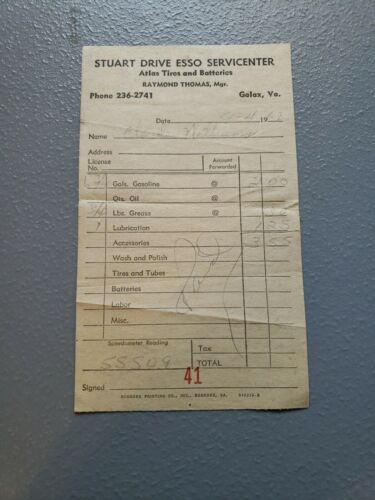 STUART DRIVE ESSO SERVICENTER
Atlas Tires and Batteries
RAYMOND THOMAS, Mgr.
Phone 236-2741 Galax, Va.
Date 19
Name
Address
License No. Amount Forwarded
Gals. Gasoline @ 3 00
Qts. Oil @
Lbs. Grease @
1 Lubrication
Accessories 3 55
Wash and Polish
Tires and Tubes
Batteries
Labor
Misc.
Speedometer Reading Tax
55509 TOTAL
41
Signed